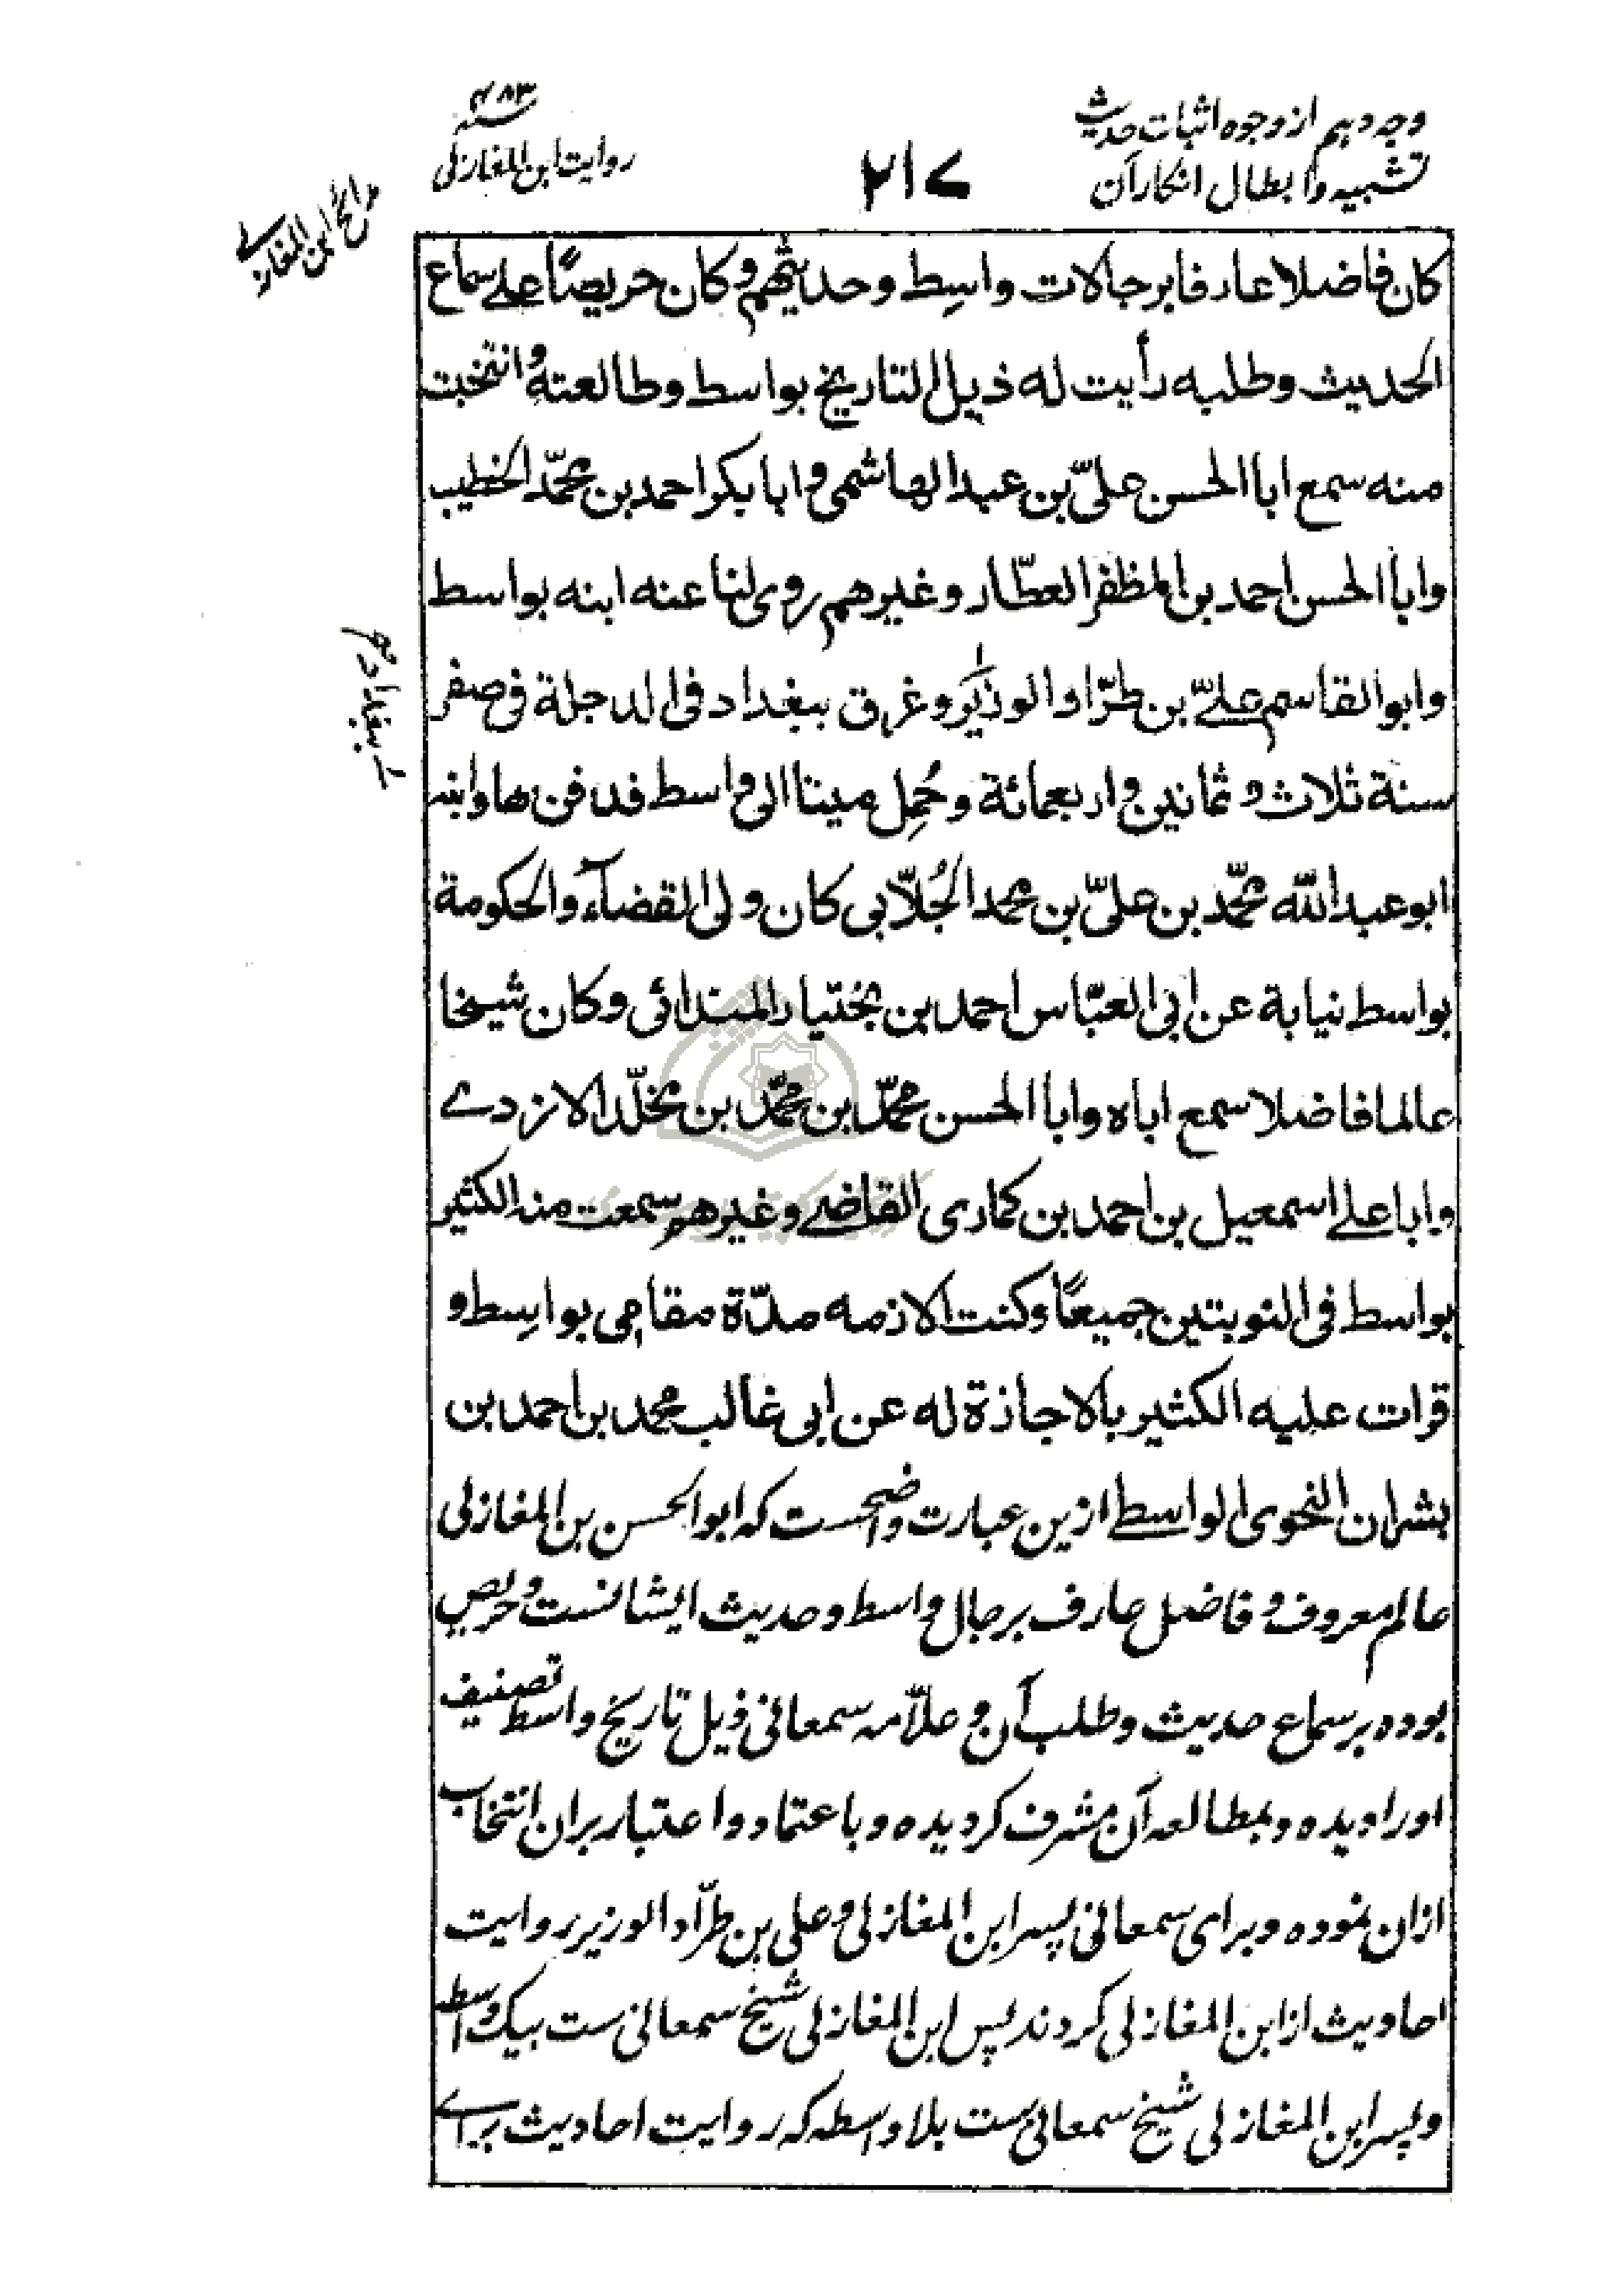 وجه دهم از وجوه اثبات حدیث
تشبیه و ابطال انکار آن
۲۱۷
سنه ۴۸۳
روایت ابن المغازلی
مدائح ابن المغازلی
کان فاضلا عارفا برجالات واسط وحدیثهم وکان حریصًا علی سماع
الحدیث وطلبه رأیت له ذیل التاریخ بواسط وطالعته وانتخبت
منه سمع ابا الحسن علیّ بن عبد الهاشمی وابا بکر احمد بن محمّد الخطیب
وابا الحسن احمد بن المظفر العطّار وغیرهم روی لنا عنه ابنه بواسط
وابو القاسم علیّ بن طرّاد الوزیر وغرق ببغداد فی الدجلة فی صفر
سنة ثلاث وثمانین واربعمائة وحُمِل میتا الی واسط فدفن بها وابنه
ابو عبد الله محمّد بن علیّ بن محمد الجُلّابی کان ولی القضاء والحکومة
بواسط نیابة عن ابی العبّاس احمد بن بختیار المندائی وکان شیخا
عالما فاضلا سمع اباه وابا الحسن محمّد بن محمّد بن مخلّد الازدے
وابا علی اسمعیل بن احمد بن کماری القاضی وغیرهم سمعت منه الکثیر
بواسط فی النوبتین جمیعًا وکنت الازمه مدّة مقامی بواسِط و
قرات علیه الکثیر بالاجازة له عن ابی غالب محمد بن احمد بن
بشران النحوی الواسطی ازین عبارت واضحست که ابو الحسن بن المغازلی
عالم معروف و فاضل عارف برجال واسط و حدیث ایشانست و حریص
بوده بر سماع حدیث و طلب آن و علاّمه سمعانی ذیل تاریخ واسط تصنیف
او را دیده و بمطالعه آن مشرف گردیده و باعتماد و اعتبار بران انتخاب
ازان نموده و برای سمعانی پسر ابن المغازلی و علی بن طرّاد الوزیر روایت
احادیث از ابن المغازلی کردند پس ابن المغازلی شیخ سمعانی ست بیک واسطه
و پسر ابن المغازلی شیخ سمعانی ست بلا واسطه که روایت احادیث براے